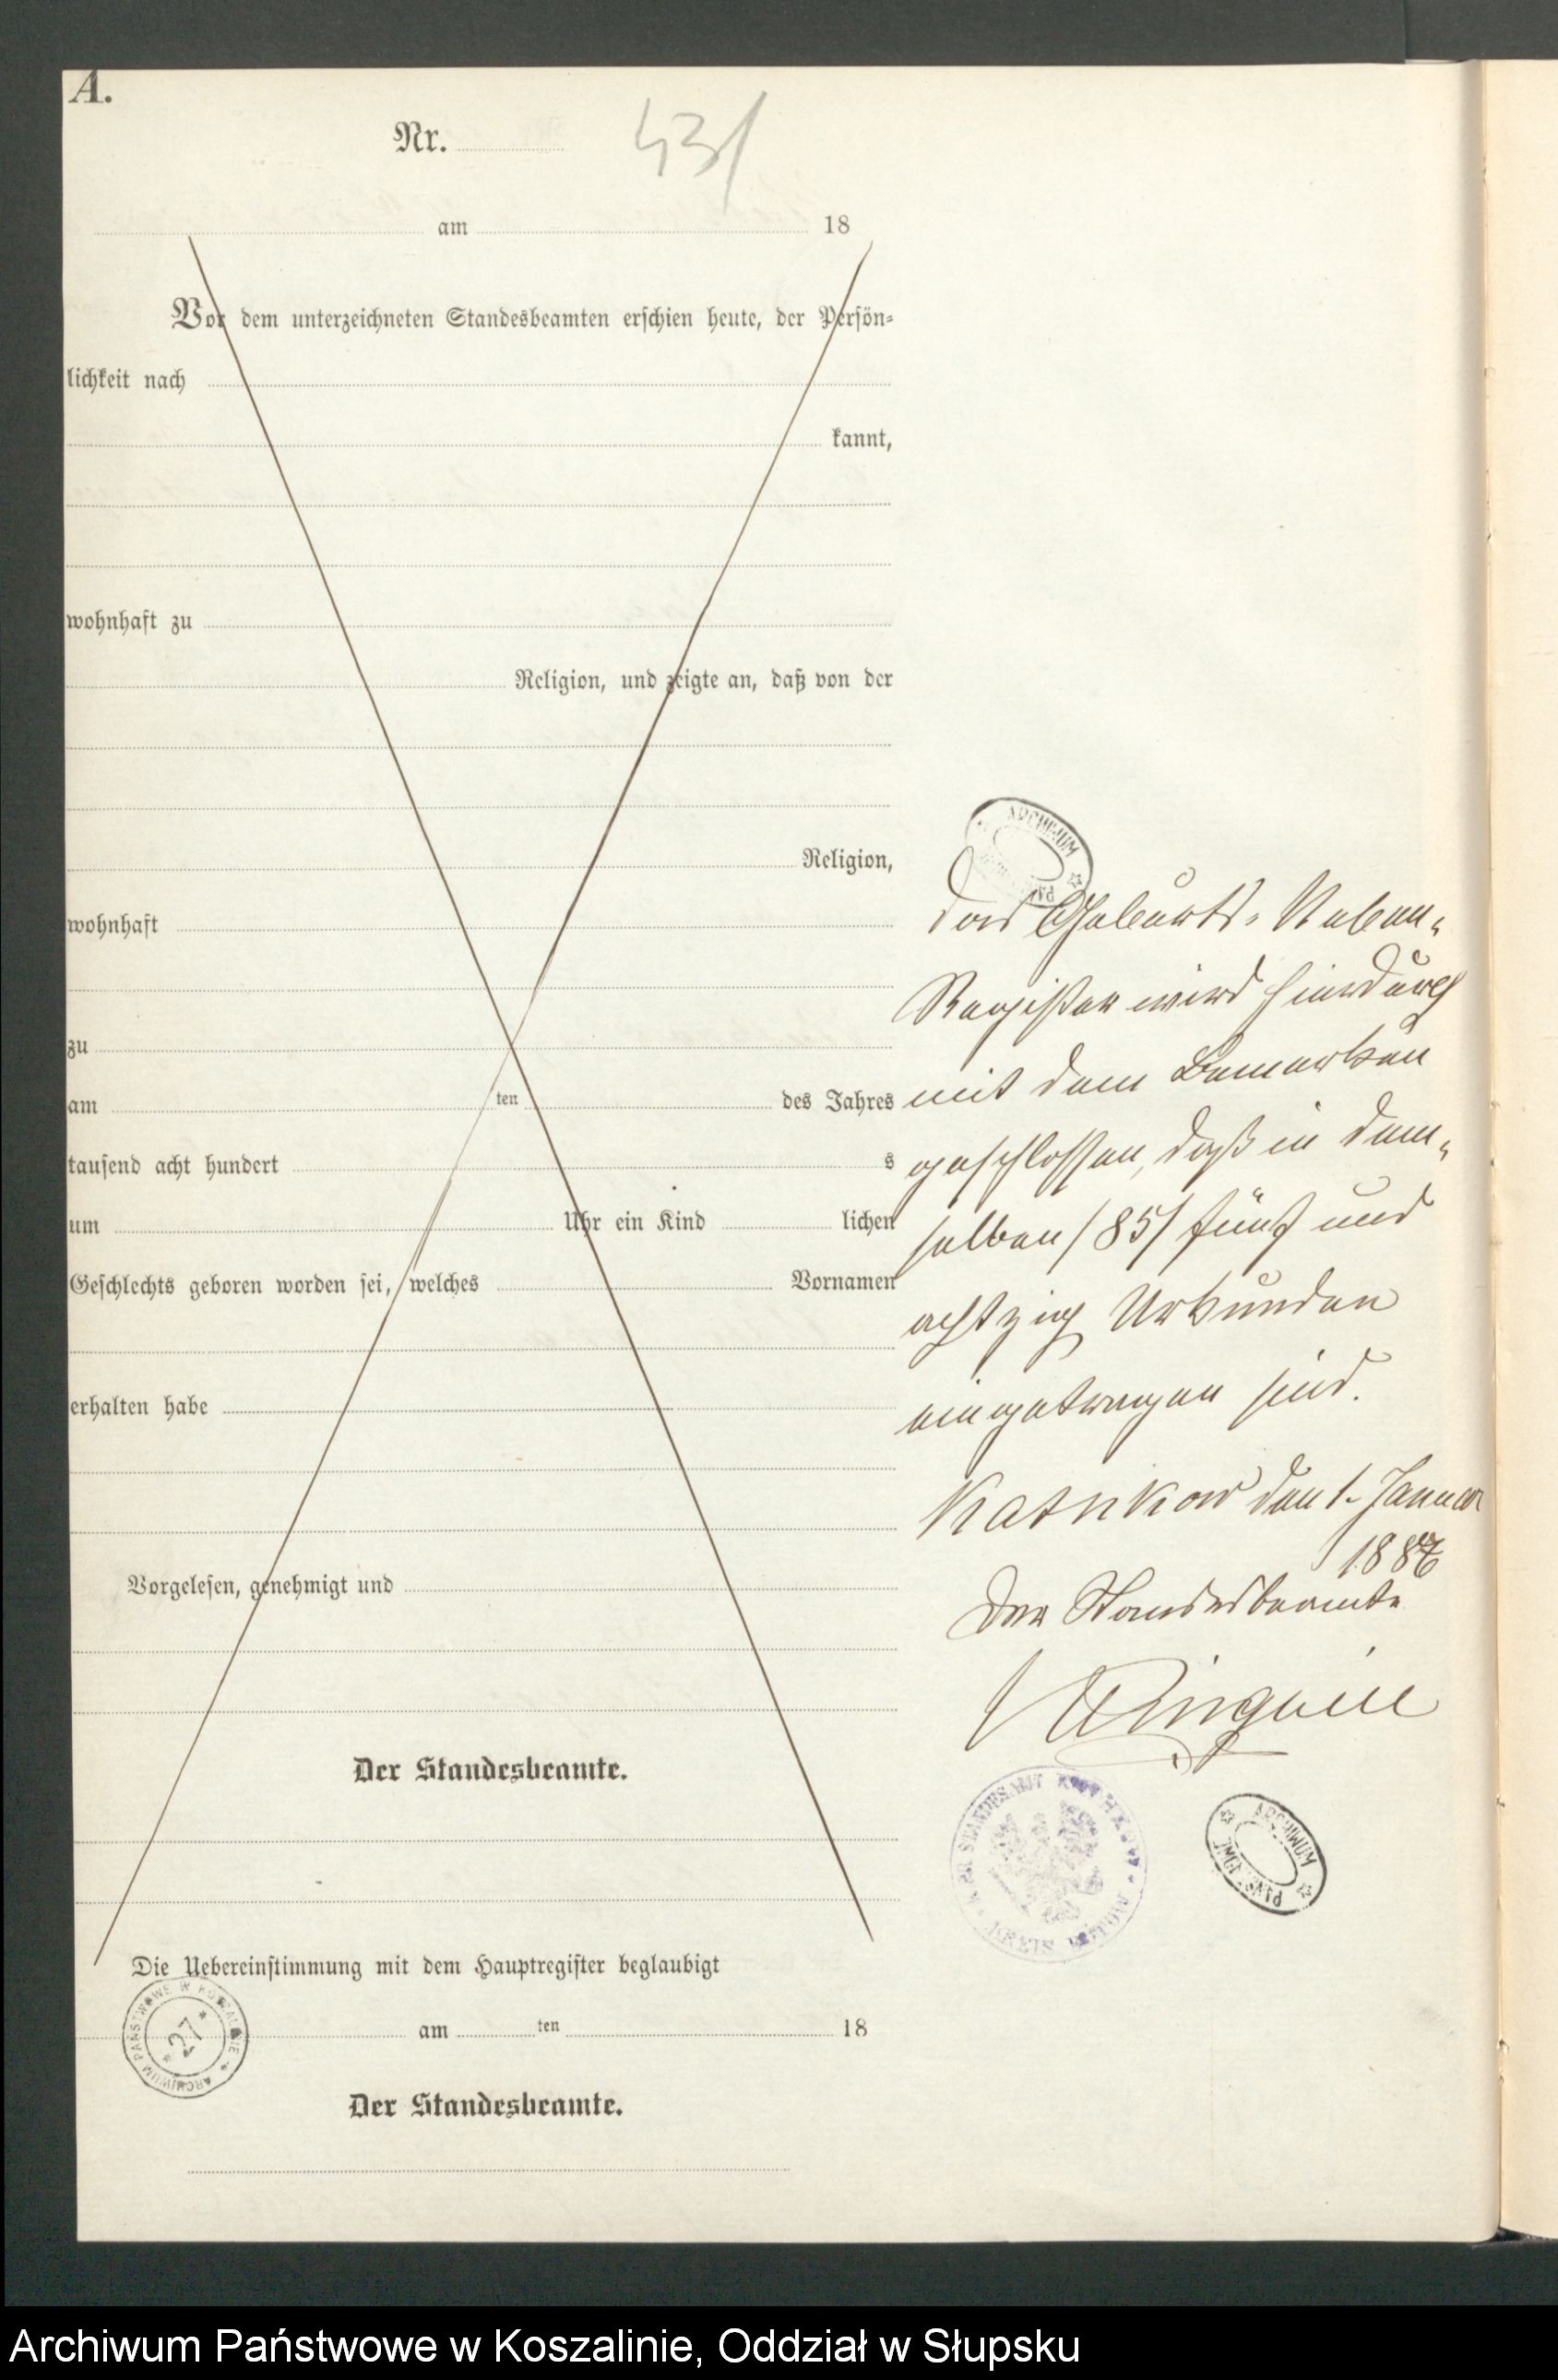 A.
Nr. 43/
am 18
Vor dem unterzeichneten Standesbeamten erschien heute, der Persön-
lichkeit nach
kannt,
wohnhaft zu
Religion, und zeigte an, daß von der
Religion,
wohnhaft
zu
am ten des Jahres
tausend acht hundert s
um Uhr ein Kind lichen
Geschlechts geboren worden sei, welches Vornamen
erhalten habe
Vorgelesen, genehmigt und
Der Standesbeamte.
Die Uebereinstimmung mit dem Hauptregister beglaubigt
am ten 18
Der Standesbeamte.
ARCHIWUM
Das Geburts-Neben-
Register wird hierdurch
mit dem Bemerken
geschlossen, daß in dem-
selben /85/ fünf und
achtzig Urkunden
eingetragen sind.
Kathkow den 1. Januar
Der Standesbeamte
STANDESAMT
KREIS
ARCHIWUM
ARCHIWUM PAŃSTWOWE W KOSZALINIE
* 27 *
Archiwum Państwowe w Koszalinie, Oddział w Słupsku